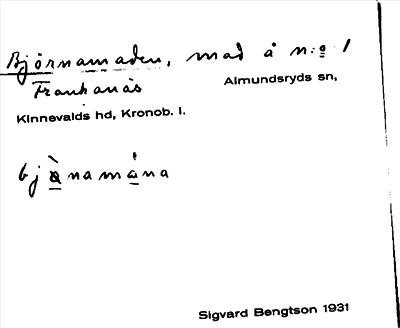 Björnamaden, mad å n:o 1
Frankanäs Almundsryds sn,
Kinnevalds hd, Kronob. l.
bjànamána
Sigvard Bengtson 1931